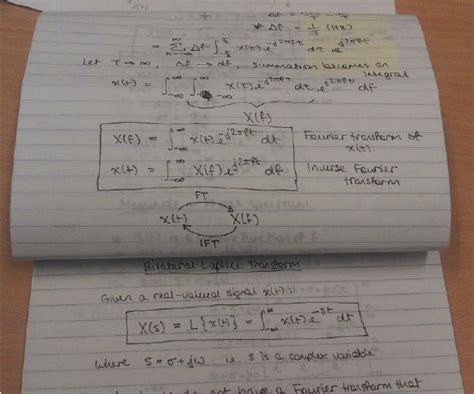 * Δf = 1/T (Hz)
= Σ_{n=-∞}^{∞} Δf ∫ x(τ) e^{-j2πft} dτ e^{j2πft}
Let T → ∞, Δf → df, summation becomes an integral
x(t) = ∫_{-∞}^{∞} ∫_{-∞}^{∞} x(τ) e^{-j2πfτ} dτ e^{j2πft} df
X(f)
X(f) = ∫_{-∞}^{∞} x(t) e^{-j2πft} dt Fourier transform of x(t)
x(t) = ∫_{-∞}^{∞} X(f) e^{j2πft} df Inverse Fourier transform
FT
x(t) X(f)
IFT
Bilateral Laplace Transform
Given a real-valued signal x(t):
X(s) = L{x(t)} = ∫_{-∞}^{∞} x(t) e^{-st} dt
where s = σ + jω i.e. s is a complex variable
not have a Fourier transform that